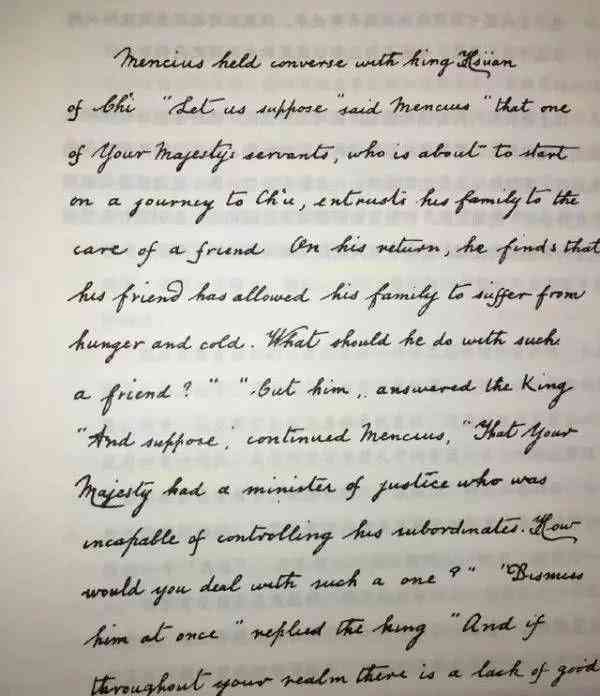 Mencius held converse with king Hsüan
of Ch'i "Let us suppose" said Mencius "that one
of Your Majesty's servants, who is about to start
on a journey to Ch'u, entrusts his family to the
care of a friend On his return, he finds that
his friend has allowed his family to suffer from
hunger and cold. What should he do with such
a friend?" "Cut him," answered the King
"And suppose", continued Mencius, "That Your
Majesty had a minister of justice who was
incapable of controlling his subordinates. How
would you deal with such a one?" "Dismiss
him at once" replied the king "And if
throughout your realm there is a lack of good